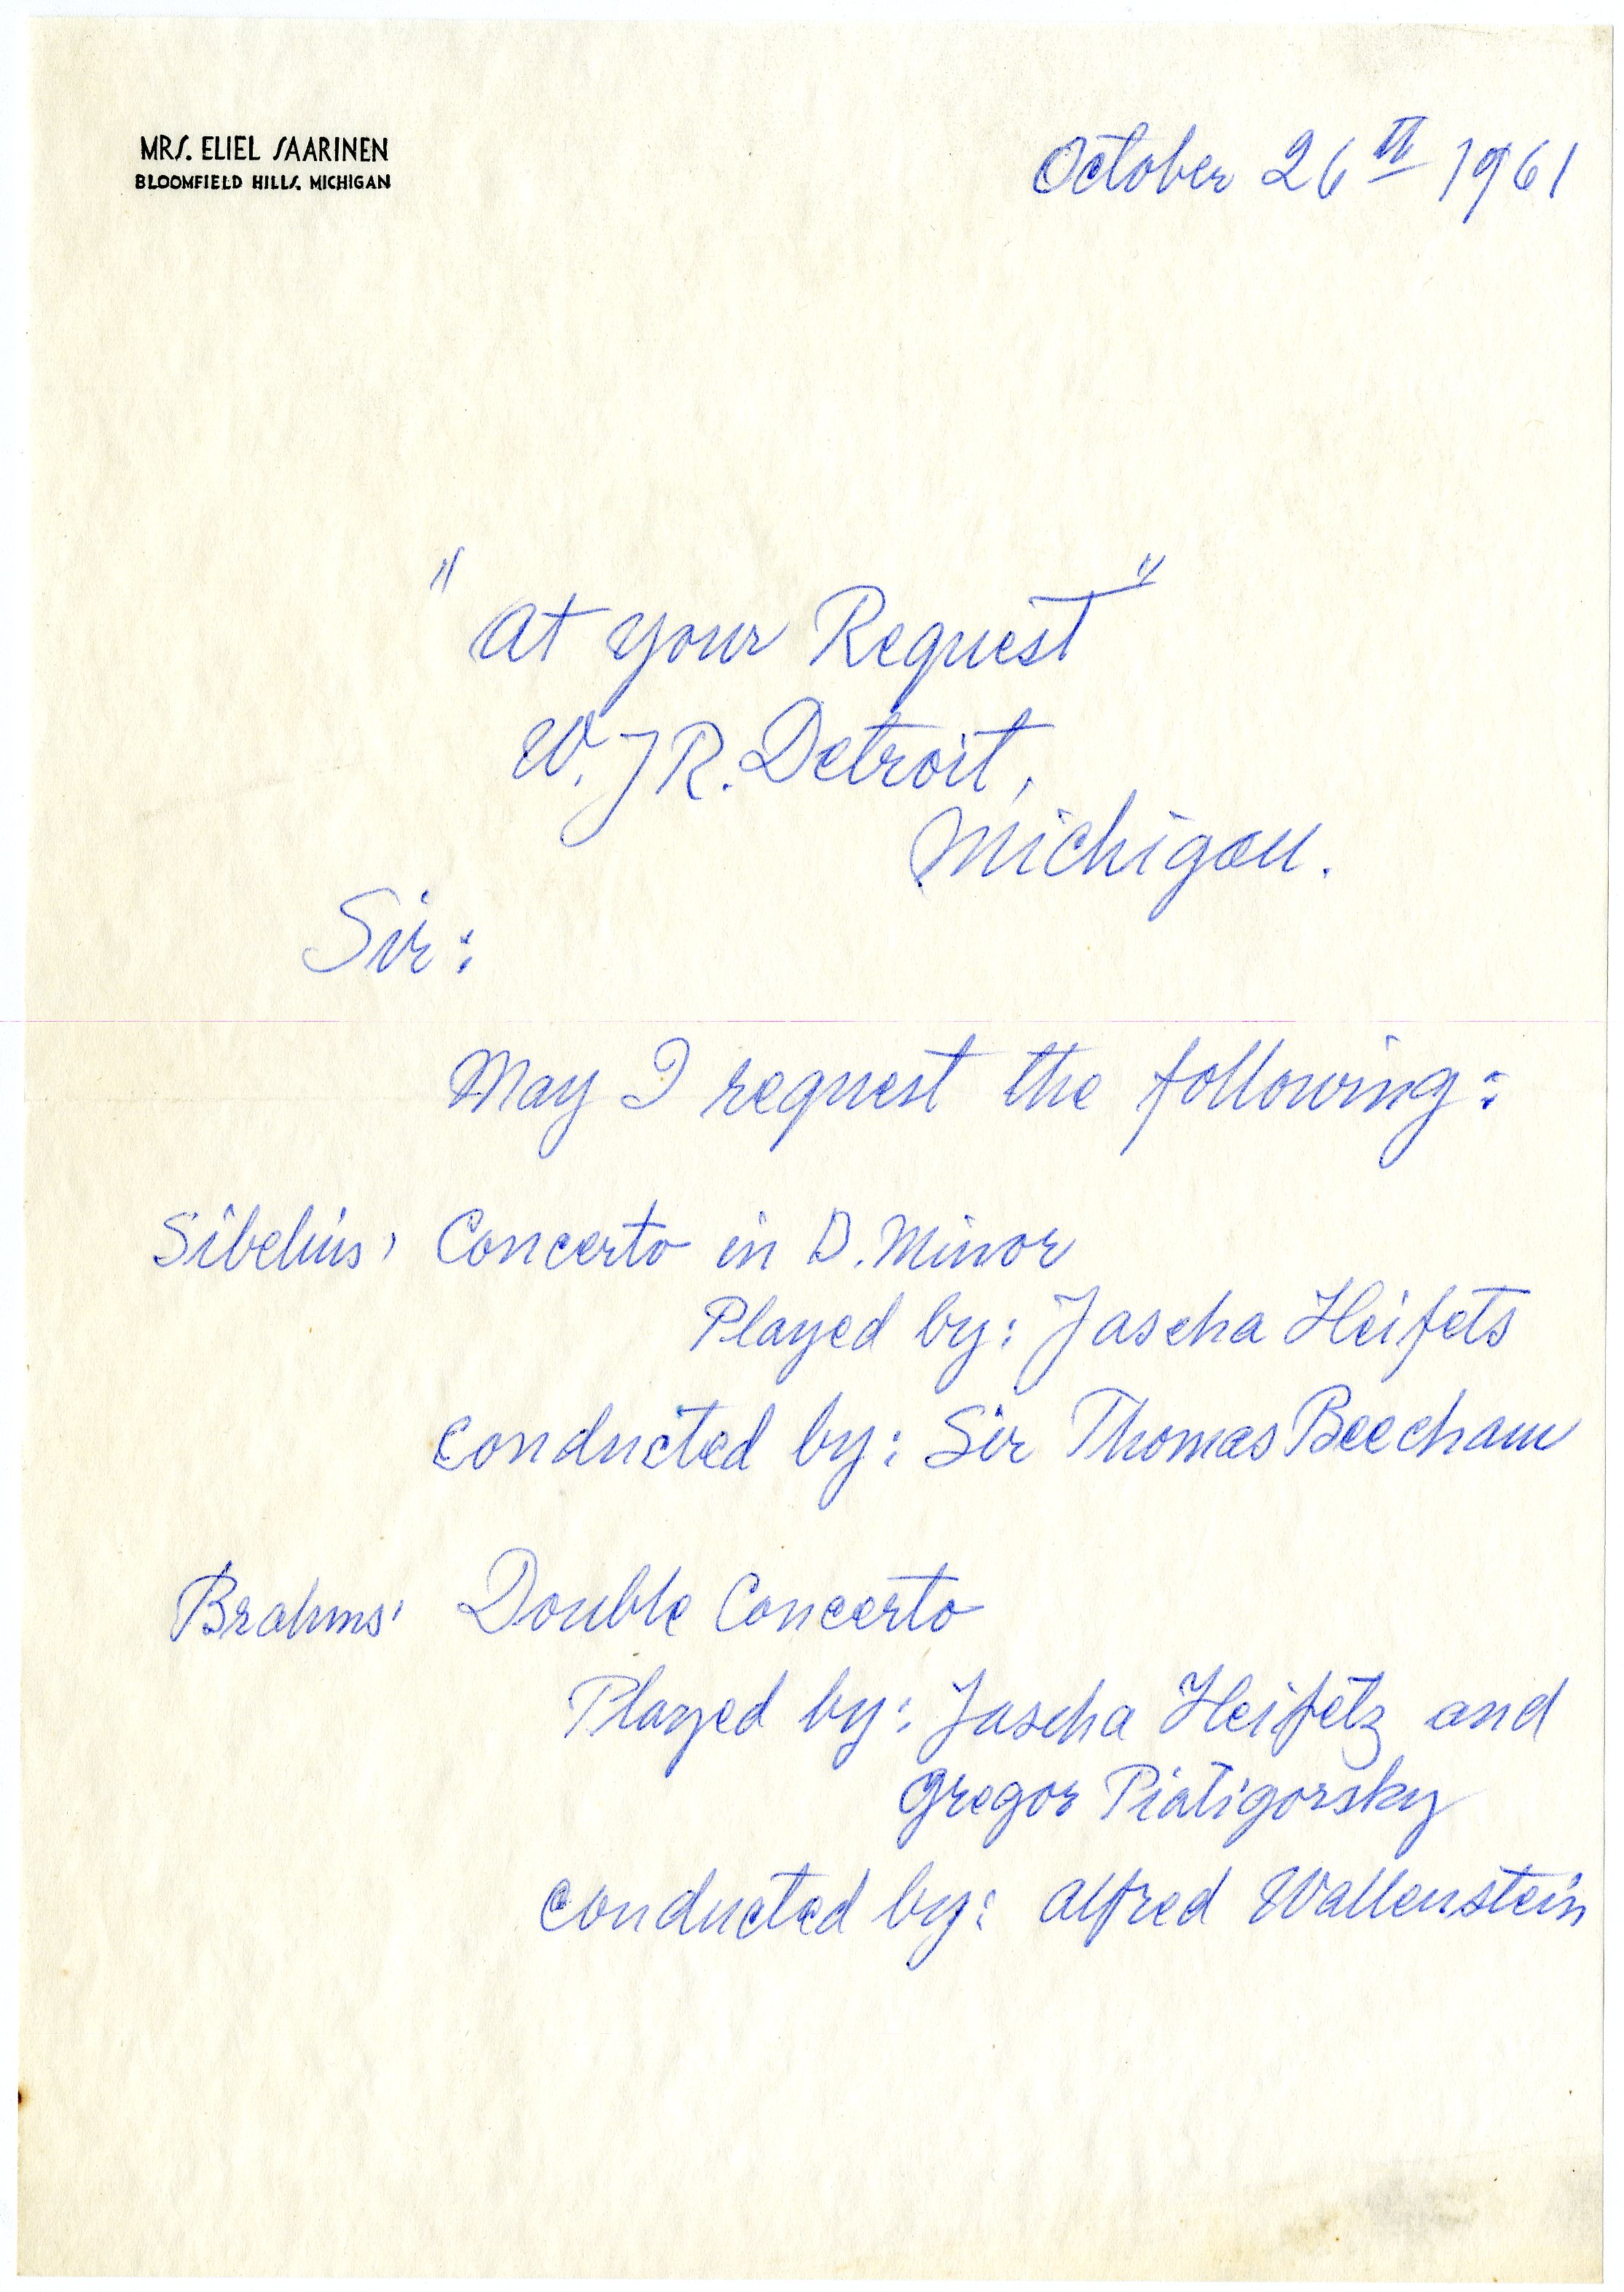 MRS. ELIEL SAARINEN
BLOOMFIELD HILLS, MICHIGAN
October 26th 1961
"at your Request"
W.JR. Detroit,
Michigan.
Sir:
May I request the following:
Sibelius' Concerto in D. Minor
Played by: Jascha Heifets
conducted by: Sir Thomas Beecham
Brahms' Double Concerto
Played by: Jascha Heifetz and
Gregor Piatigorsky
conducted by: Alfred Wallenstein